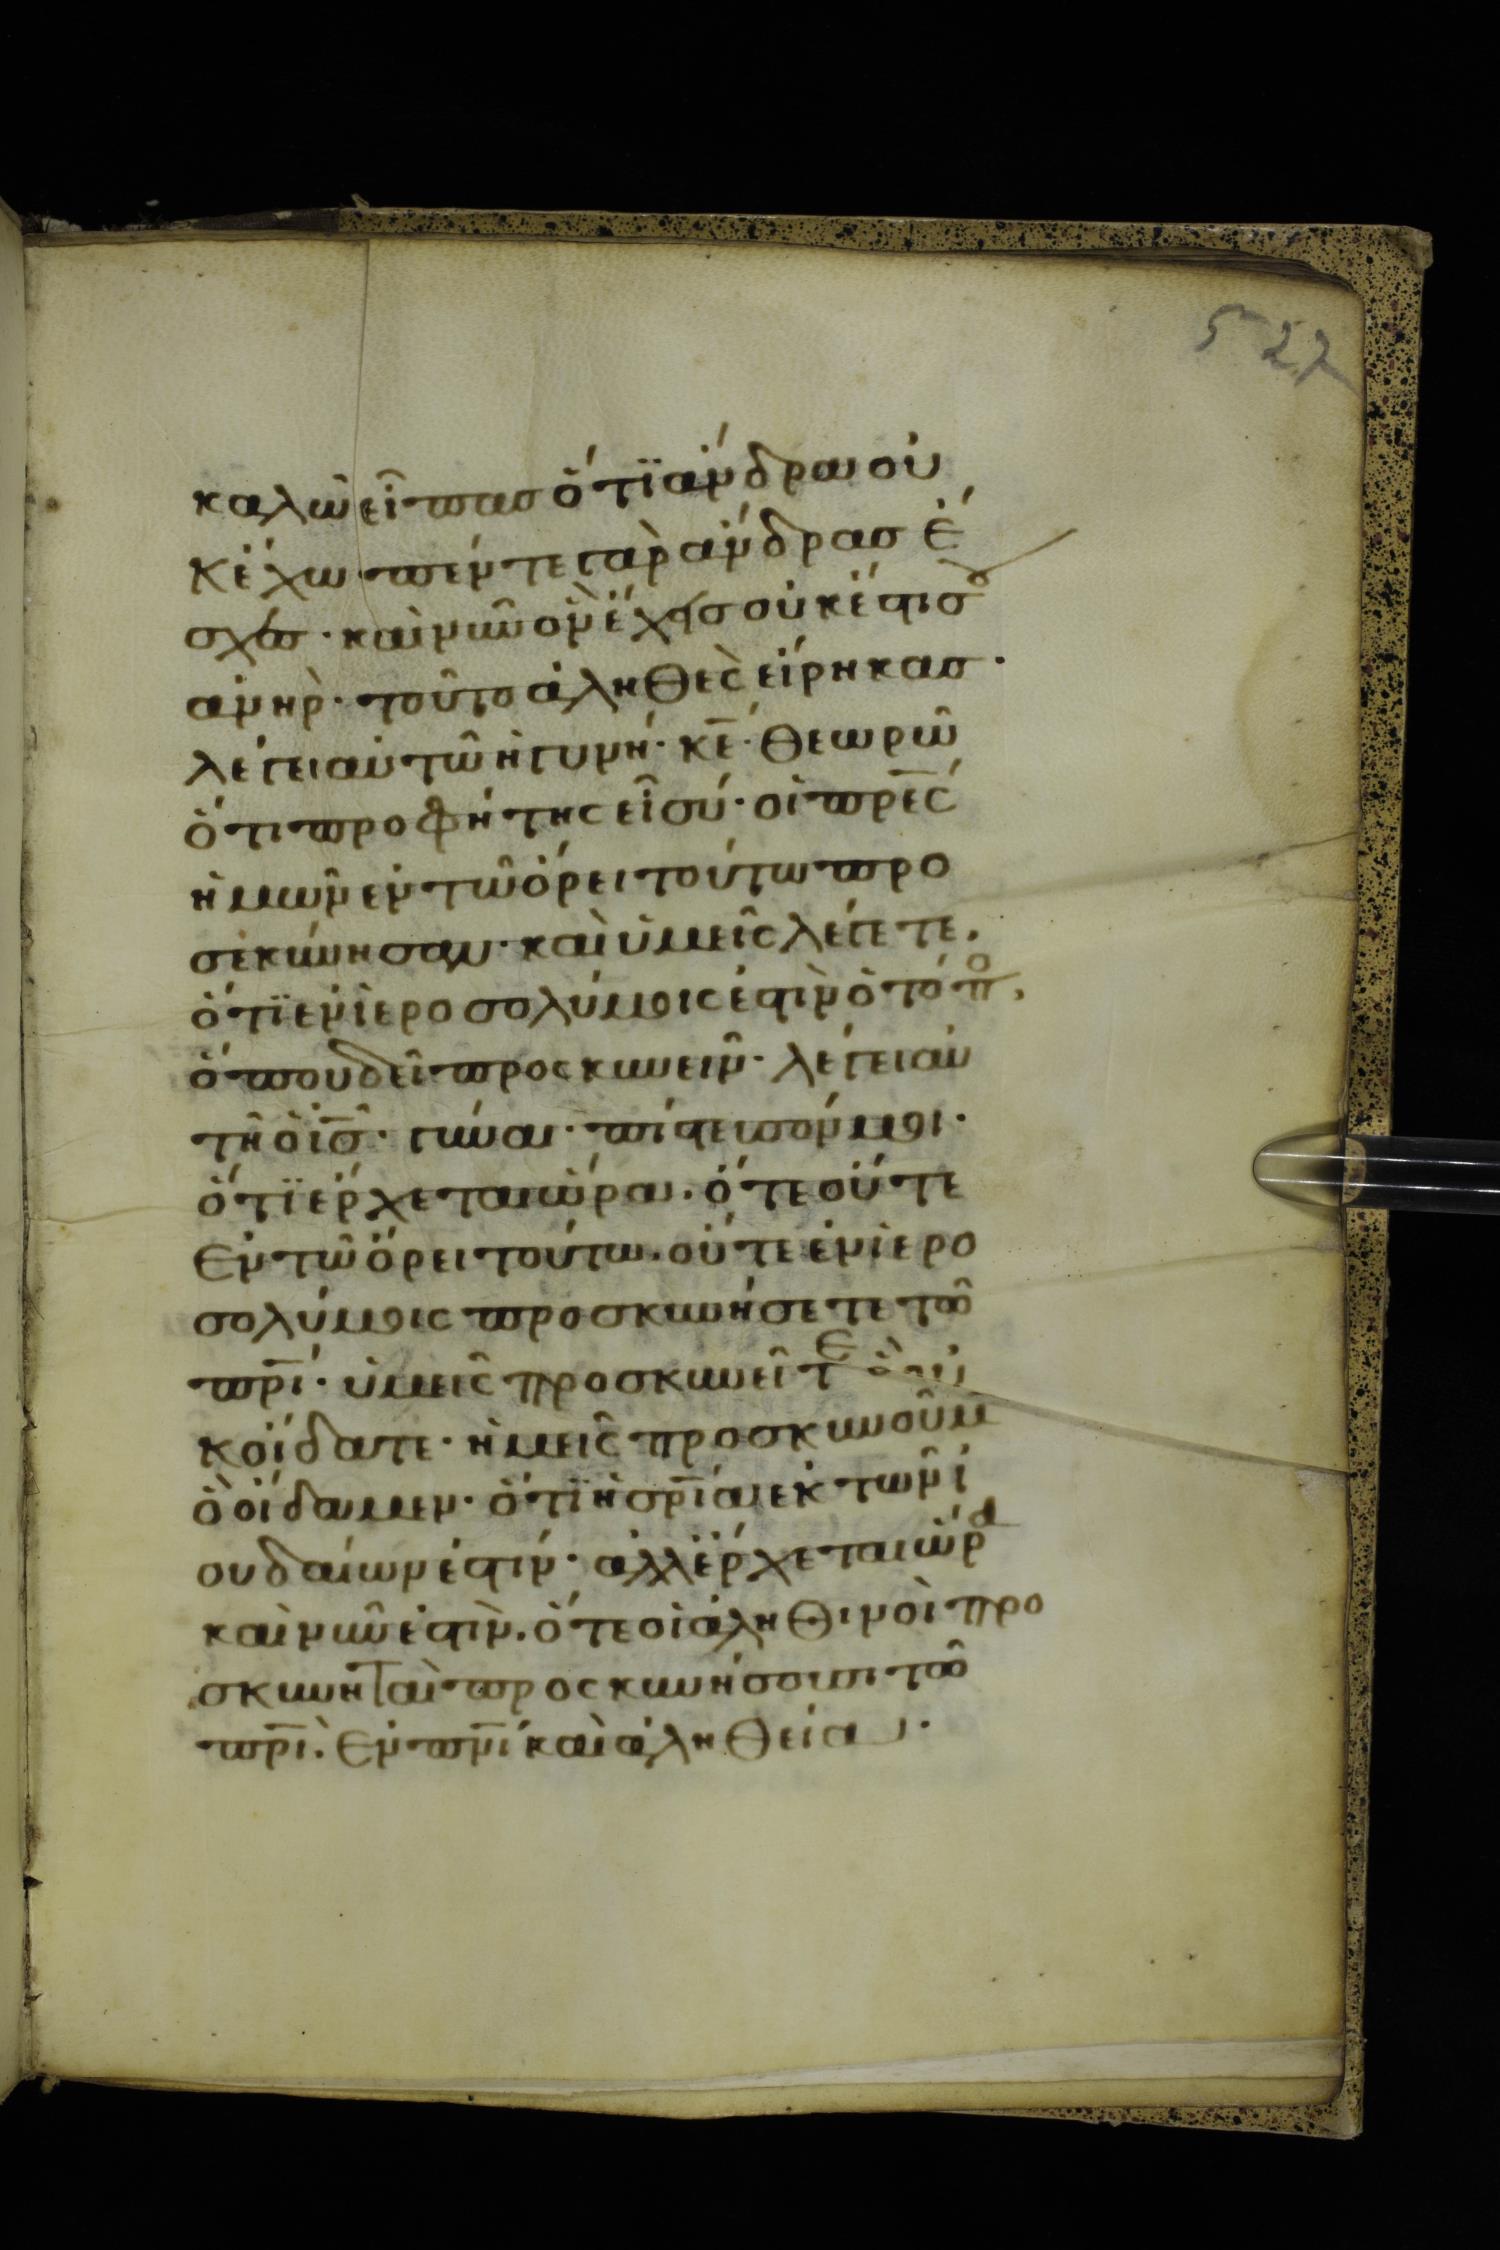 527
καλῶ εἶπασ ὅτϊ ἄνδρα οὐ
κ ἔχω· πέντε γὰρ ἄνδρασ ἔ
σχεσ· καὶ νῦν ὃν ἔχεισ οὐκ ἔστι σου
ἀνὴρ· τοῦτο ἀληθὲς εἴρηκασ·
λέγει αὐτῶ ἡ γυνή· κε̅· θεωρῶ
ὅτι προφήτης εἶ σύ· οἱ πρε̅ς
ἡμῶν ἐν τῶ ὄρει τούτω προ
σεκύνησαν· καὶ ὑμεῖς λέγετε,
ὅτϊ ἐν ἱεροσολύμοις ἐστὶν ὁ τόπο,
ὅπου δεῖ προςκυνεῖν· λέγει αὐ
τῆ ὁ ι̅σ̅· γύναι· πίστευσόν μοι·
ὅτϊ ἔρχεται ὥρα. ὅτε οὔτε
ἐν τῶ ὄρει τούτω. οὔτε ἐν ἱερο
σολύμοις προσκυνήσετε τῶ
πρ̅ι· ὑμεῖς προσκυνεῖτε ὃ οὐ
κ οἴδατε· ἡμεῖς προσκυνοῦμ
ὃ οἴδαμεν· ὅτϊ ἡ σρ̅ία ἐκ τῶν ἰ
ουδαίων ἐστίν· ἀλλ' ἔρχεται ὥρα
καὶ νῦν ἐστὶν. ὅτε οἱ ἀληθινοὶ προ
σκυνηταὶ προςκυνήσουσι τῶ
πρ̅ι. ἐν πν̅ι καὶ ἀληθεία·